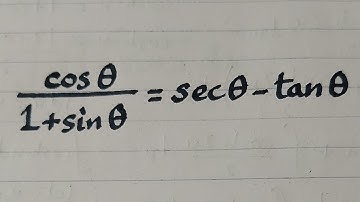 cosθ / 1+sinθ = secθ-tanθ